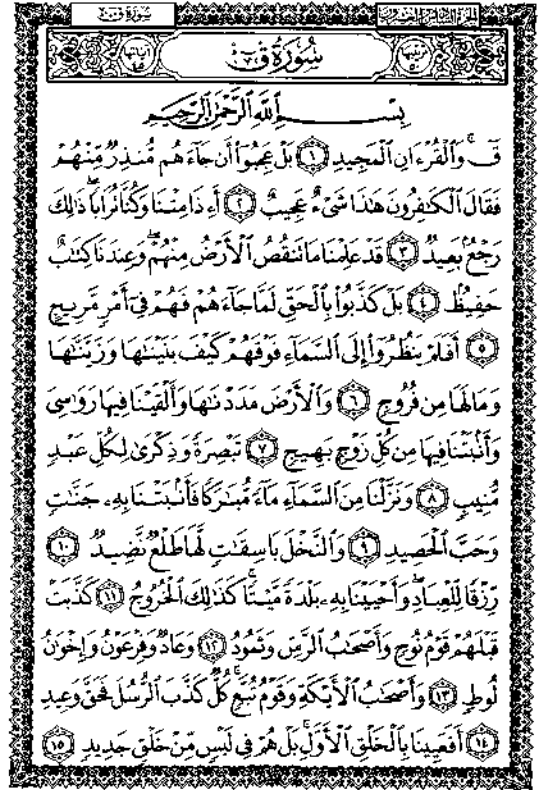 سُورَةُ قٓ الجزء السادس والعشرون
ترتيبها ٥٠ سُورَةُ قٓ آياتها ٤٥
بِسْمِ ٱللَّهِ ٱلرَّحْمَٰنِ ٱلرَّحِيمِ
قٓۚ وَٱلْقُرْءَانِ ٱلْمَجِيدِ ١ بَلْ عَجِبُوٓا۟ أَن جَآءَهُم مُّنذِرٌ مِّنْهُمْ
فَقَالَ ٱلْكَٰفِرُونَ هَٰذَا شَىْءٌ عَجِيبٌ ٢ أَءِذَا مِتْنَا وَكُنَّا تُرَابًاۖ ذَٰلِكَ
رَجْعٌۢ بَعِيدٌ ٣ قَدْ عَلِمْنَا مَا تَنقُصُ ٱلْأَرْضُ مِنْهُمْۖ وَعِندَنَا كِتَٰبٌ
حَفِيظٌۢ ٤ بَلْ كَذَّبُوا۟ بِٱلْحَقِّ لَمَّا جَآءَهُمْ فَهُمْ فِىٓ أَمْرٍ مَّرِيجٍ
٥ أَفَلَمْ يَنظُرُوٓا۟ إِلَى ٱلسَّمَآءِ فَوْقَهُمْ كَيْفَ بَنَيْنَٰهَا وَزَيَّنَّٰهَا
وَمَا لَهَا مِن فُرُوجٍ ٦ وَٱلْأَرْضَ مَدَدْنَٰهَا وَأَلْقَيْنَا فِيهَا رَوَٰسِىَ
وَأَنۢبَتْنَا فِيهَا مِن كُلِّ زَوْجٍۭ بَهِيجٍ ٧ تَبْصِرَةً وَذِكْرَىٰ لِكُلِّ عَبْدٍ
مُّنِيبٍ ٨ وَنَزَّلْنَا مِنَ ٱلسَّمَآءِ مَآءً مُّبَٰرَكًا فَأَنۢبَتْنَا بِهِۦ جَنَّٰتٍ
وَحَبَّ ٱلْحَصِيدِ ٩ وَٱلنَّخْلَ بَاسِقَٰتٍ لَّهَا طَلْعٌ نَّضِيدٌ ١٠
رِّزْقًا لِّلْعِبَادِۖ وَأَحْيَيْنَا بِهِۦ بَلْدَةً مَّيْتًاۚ كَذَٰلِكَ ٱلْخُرُوجُ ١١ كَذَّبَتْ
قَبْلَهُمْ قَوْمُ نُوحٍ وَأَصْحَٰبُ ٱلرَّسِّ وَثَمُودُ ١٢ وَعَادٌ وَفِرْعَوْنُ وَإِخْوَٰنُ
لُوطٍ ١٣ وَأَصْحَٰبُ ٱلْأَيْكَةِ وَقَوْمُ تُبَّعٍۚ كُلٌّ كَذَّبَ ٱلرُّسُلَ فَحَقَّ وَعِيدِ
١٤ أَفَعَيِينَا بِٱلْخَلْقِ ٱلْأَوَّلِۚ بَلْ هُمْ فِى لَبْسٍ مِّنْ خَلْقٍ جَدِيدٍ ١٥